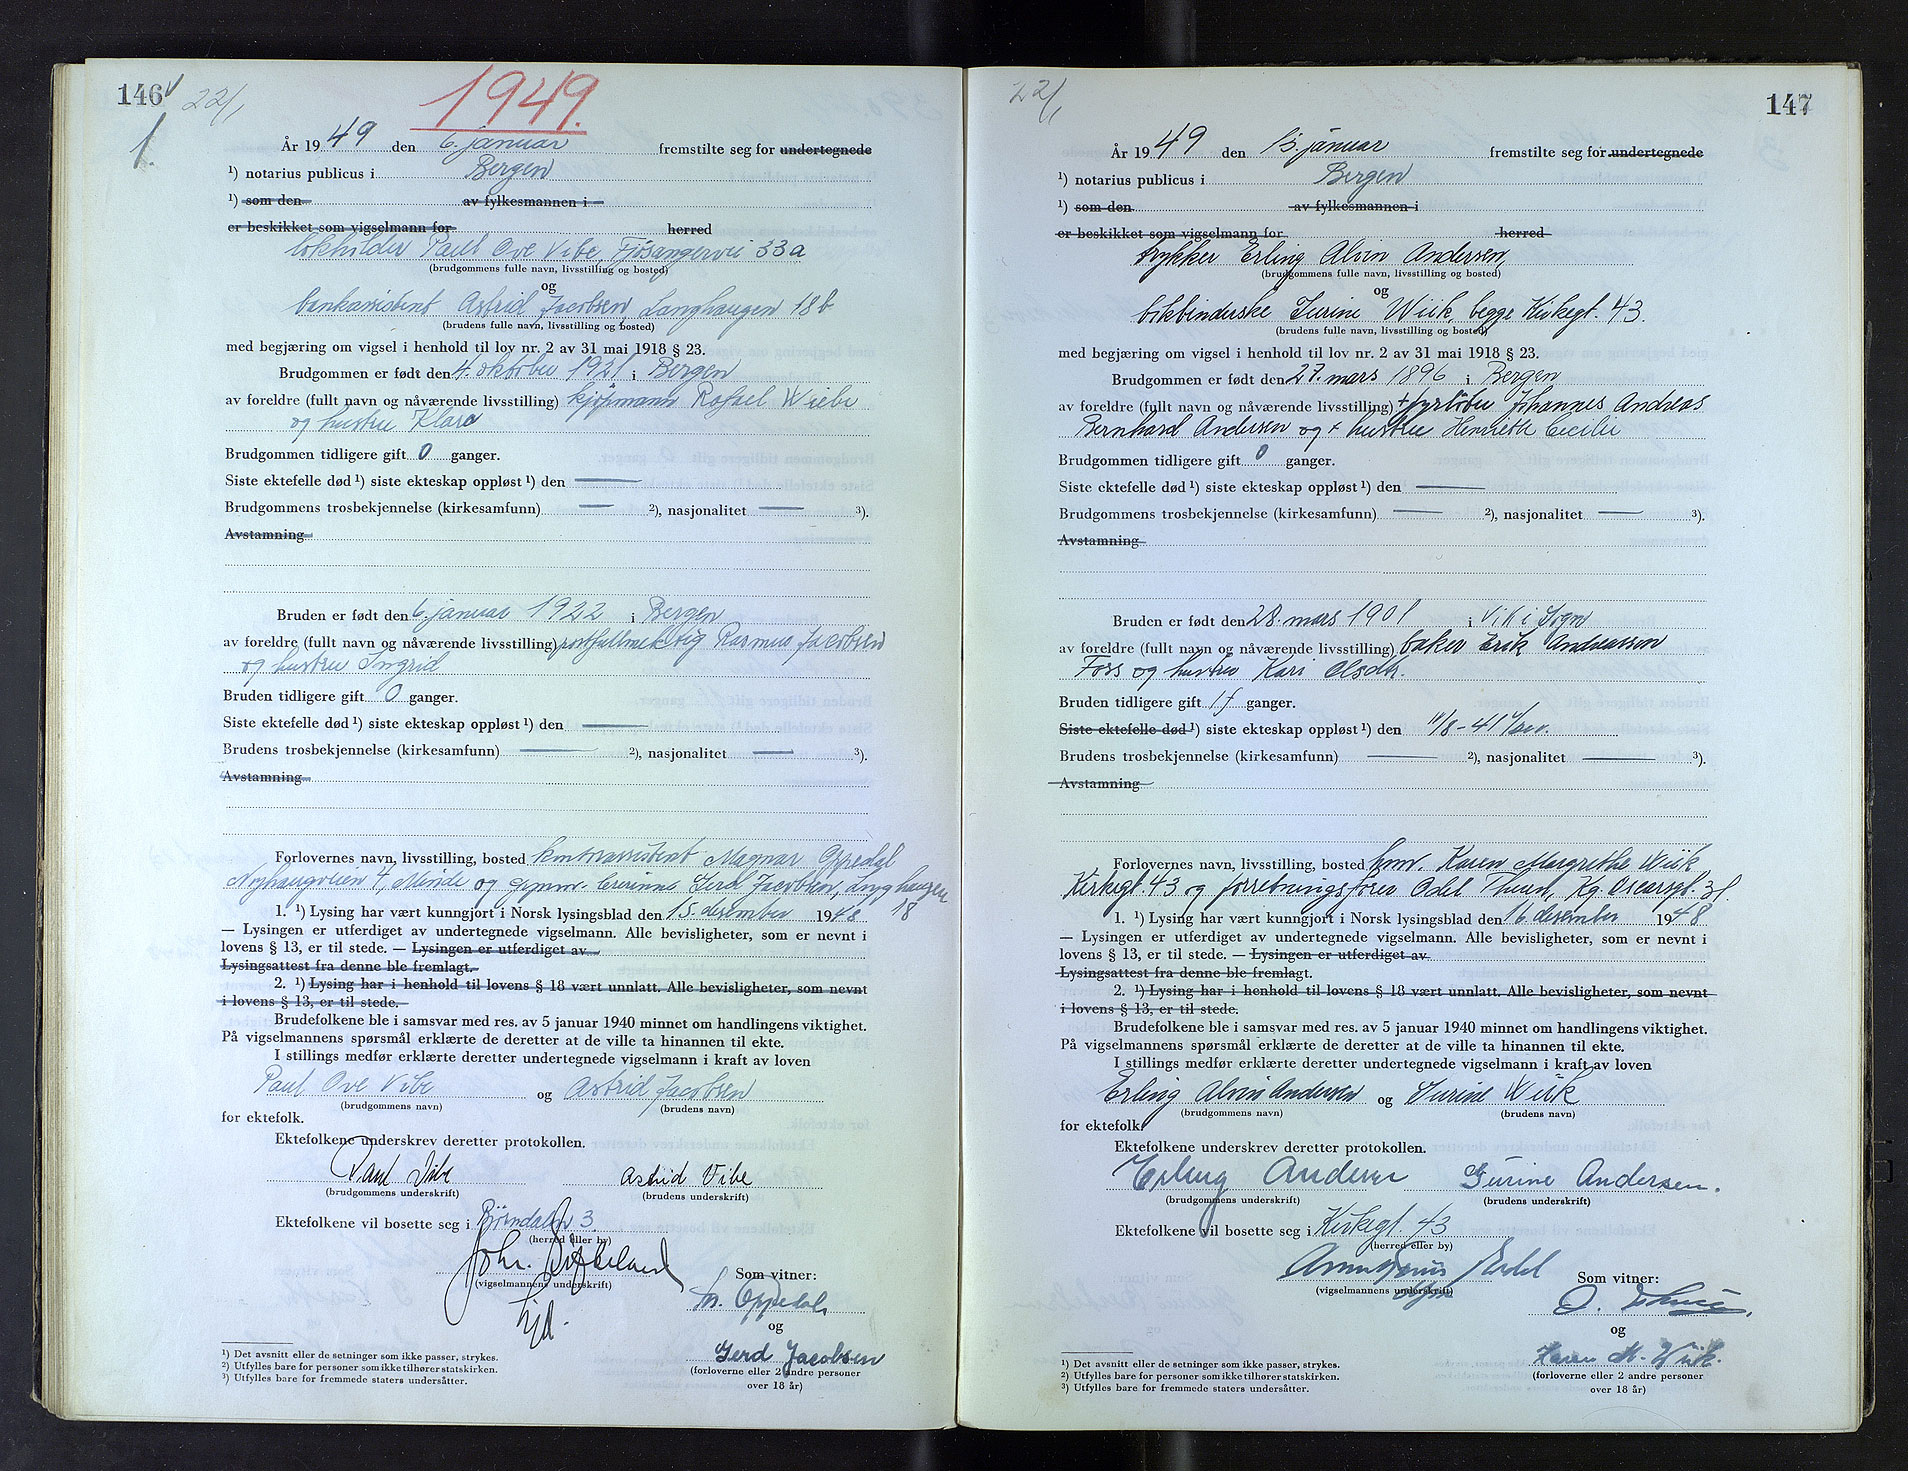 146
22/1
1949.
1.
År 1949 den 6. januar fremstilte seg for undertegnede
¹) notarius publicus i Bergen
¹) som den av fylkesmannen i
er beskikket som vigselmann for herred
lokholder Paul Ove Vibe, Fjøsangervei 33a
(brudgommens fulle navn, livsstilling og bosted)
og
bankassistent Astrid Jacobsen, Langhaugen 18b
(brudens fulle navn, livsstilling og bosted)
med begjæring om vigsel i henhold til lov nr. 2 av 31 mai 1918 § 23.
Brudgommen er født den 4. oktober 1921 i Bergen
av foreldre (fullt navn og nåværende livsstilling) kjøpmann Rafael Wiebe
og hustru Klara
Brudgommen tidligere gift 0 ganger.
Siste ektefelle død ¹) siste ekteskap oppløst ¹) den —
Brudgommens trosbekjennelse (kirkesamfunn) — ²), nasjonalitet — ³).
Avstamning
Bruden er født den 6. januar 1922 i Bergen
av foreldre (fullt navn og nåværende livsstilling) postfullmektig Rasmus Jacobsen
og hustru Ingrid
Bruden tidligere gift 0 ganger.
Siste ektefelle død ¹) siste ekteskap oppløst ¹) den —
Brudens trosbekjennelse (kirkesamfunn) — ²), nasjonalitet — ³).
Avstamning
Forlovernes navn, livsstilling, bosted kontorassistent Magnar Oppedal
4, Minde og Gerd Jacobsen, Langhaugen
1. ¹) Lysing har vært kunngjort i Norsk lysingsblad den 15. desember 1948 18
— Lysingen er utferdiget av undertegnede vigselmann. Alle bevisligheter, som er nevnt i
lovens § 13, er til stede. — Lysingen er utferdiget av
Lysingsattest fra denne ble fremlagt.
2. ¹) Lysing har i henhold til lovens § 18 vært unnlatt. Alle bevisligheter, som nevnt
i lovens § 13, er til stede.
Brudefolkene ble i samsvar med res. av 5 januar 1940 minnet om handlingens viktighet.
På vigselmannens spørsmål erklærte de deretter at de ville ta hinannen til ekte.
I stillings medfør erklærte deretter undertegnede vigselmann i kraft av loven
Paul Ove Vibe og Astrid Jacobsen
(brudgommens navn) (brudens navn)
for ektefolk.
Ektefolkene underskrev deretter protokollen.
Paul Vibe Astrid Vibe
(brudgommens underskrift) (brudens underskrift)
Ektefolkene vil bosette seg i Bjørndalen 3.
(herred eller by)
Joh.
(vigselmannens underskrift)
Som vitner:
M. Oppedal
og
Gerd Jacobsen
(forloverne eller 2 andre personer
over 18 år)
¹) Det avsnitt eller de setninger som ikke passer, strykes.
²) Utfylles bare for personer som ikke tilhører statskirken.
³) Utfylles bare for fremmede staters undersåtter.
22/1
147
År 1949 den 13. januar fremstilte seg for undertegnede
¹) notarius publicus i Bergen
¹) som den av fylkesmannen i
er beskikket som vigselmann for herred
trykker Erling Alvin Andersen,
(brudgommens fulle navn, livsstilling og bosted)
og
bokbinderske Gurine Wiik, begge Kirkegt. 43.
(brudens fulle navn, livsstilling og bosted)
med begjæring om vigsel i henhold til lov nr. 2 av 31 mai 1918 § 23.
Brudgommen er født den 27. mars 1896 i Bergen
av foreldre (fullt navn og nåværende livsstilling) + fyrbøter Johannes Andreas
Bernhard Andersen og + hustru Henriette Cecilie
Brudgommen tidligere gift 0 ganger.
Siste ektefelle død ¹) siste ekteskap oppløst ¹) den —
Brudgommens trosbekjennelse (kirkesamfunn) — ²), nasjonalitet — ³).
Avstamning
Bruden er født den 28. mars 1901 i Vik i Sogn
av foreldre (fullt navn og nåværende livsstilling) baker Erik Andreassen
Foss og hustru Kari Olsdtr.
Bruden tidligere gift 1 ganger.
Siste ektefelle død ¹) siste ekteskap oppløst ¹) den 11/8-41
Brudens trosbekjennelse (kirkesamfunn) — ²), nasjonalitet — ³).
Avstamning
Forlovernes navn, livsstilling, bosted Karen Margrethe Wiik
Kirkegt. 43 og forretningsfører Odel Kg. Oscarsgt. 31.
1. ¹) Lysing har vært kunngjort i Norsk lysingsblad den 16. desember 1948
— Lysingen er utferdiget av undertegnede vigselmann. Alle bevisligheter, som er nevnt i
lovens § 13, er til stede. — Lysingen er utferdiget av
Lysingsattest fra denne ble fremlagt.
2. ¹) Lysing har i henhold til lovens § 18 vært unnlatt. Alle bevisligheter, som nevnt
i lovens § 13, er til stede.
Brudefolkene ble i samsvar med res. av 5 januar 1940 minnet om handlingens viktighet.
På vigselmannens spørsmål erklærte de deretter at de ville ta hinannen til ekte.
I stillings medfør erklærte deretter undertegnede vigselmann i kraft av loven
Erling Alvin Andersen og Gurine Wiik
(brudgommens navn) (brudens navn)
for ektefolk.
Ektefolkene underskrev deretter protokollen.
Erling Andersen Gurine Andersen.
(brudgommens underskrift) (brudens underskrift)
Ektefolkene vil bosette seg i Kirkegt. 43
(herred eller by)
(vigselmannens underskrift)
Som vitner:
O.
og
Karen M. Wiik.
(forloverne eller 2 andre personer
over 18 år)
¹) Det avsnitt eller de setninger som ikke passer, strykes.
²) Utfylles bare for personer som ikke tilhører statskirken.
³) Utfylles bare for fremmede staters undersåtter.